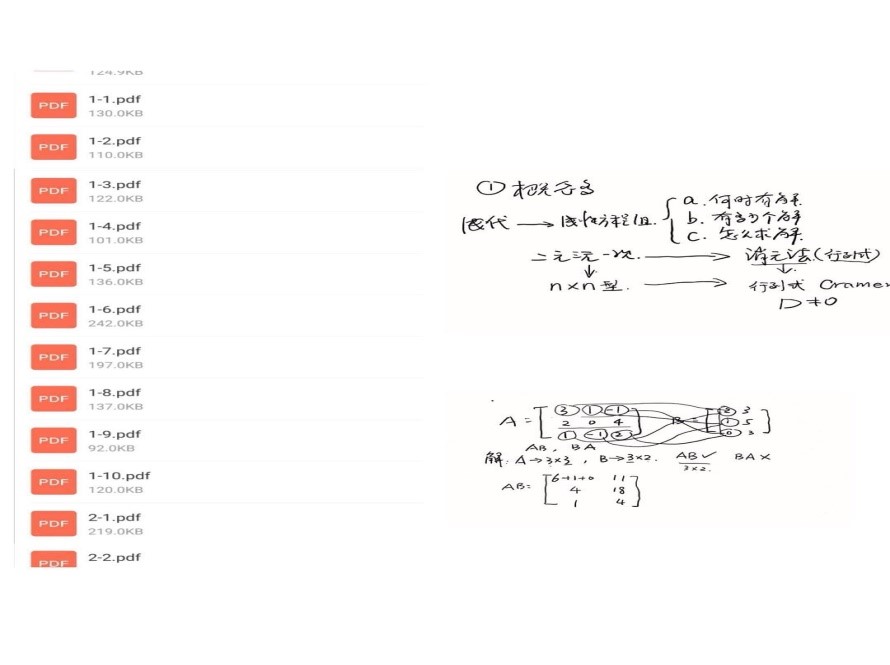 124.9KB
PDF 1-1.pdf
130.0KB
PDF 1-2.pdf
110.0KB
PDF 1-3.pdf
122.0KB
PDF 1-4.pdf
101.0KB
PDF 1-5.pdf
136.0KB
PDF 1-6.pdf
242.0KB
PDF 1-7.pdf
197.0KB
PDF 1-8.pdf
137.0KB
PDF 1-9.pdf
92.0KB
PDF 1-10.pdf
120.0KB
PDF 2-1.pdf
219.0KB
PDF 2-2.pdf
① 概念
线代 → 线性方程组 { a. 何时有解
b. 有多少个解
c. 怎么求解
二元三元一次. → 消元法(行列式)
↓ ↓
n×n型. → 行列式 Cramer
D≠0
A = [ 3 1 -1
2 0 4
1 -1 2 ] B = [ 2 3
1 5
0 3 ]
AB, BA
解: A→3×3, B→3×2. AB✓ BA×
3×2.
AB= [ 6+1+0 11
4 18
1 4 ]